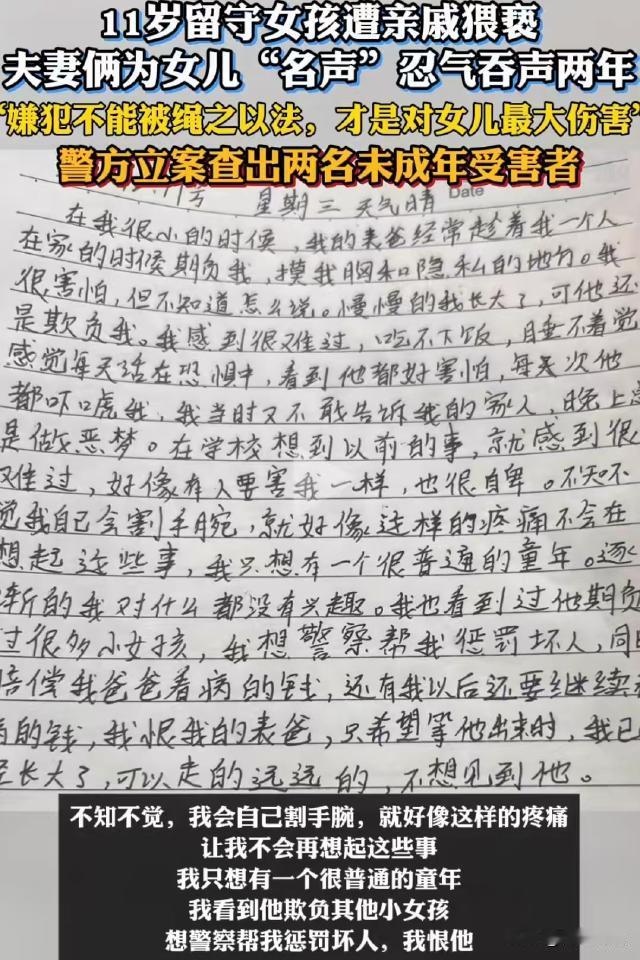 11岁留守女孩遭亲戚猥亵
夫妻俩为女儿“名声”忍气吞声两年
“嫌犯不能被绳之以法，才是对女儿最大伤害”
警方立案查出两名未成年受害者
星期三 天气晴 Date
在我很小的时候，我的表爸经常趁着我一个人
在家的时候期负我，摸我胸和隐私的地方。我
很害怕，但不知道怎么说。慢慢的我长大了，可他还
是欺负我。我感到很难过，吃不下饭，睡不着觉
感觉每天活在恐惧中，看到他都好害怕，每次他
都吓唬我，我当时又不敢告诉我的家人，晚上总
是做恶梦。在学校想到以前的事，就感到很
难过，好像有人要害我一样，也很自卑。不知不
觉我自己会割手腕，就好像这样的疼痛不会在
想起这些事，我只想有一个很普通的童年。逐
渐的我对什么都没有兴趣。我也看到过他期负
过很多小女孩，我想警察帮我惩罚坏人，同时
赔偿我爸爸看病的钱，还有我以后还要继续看
病的钱，我恨我的表爸，只希望等他出来时，我已
经长大了，可以走的远远的，不想见到他。
不知不觉，我会自己割手腕，就好像这样的疼痛
让我不会再想起这些事
我只想有一个很普通的童年
我看到他欺负其他小女孩
想警察帮我惩罚坏人，我恨他